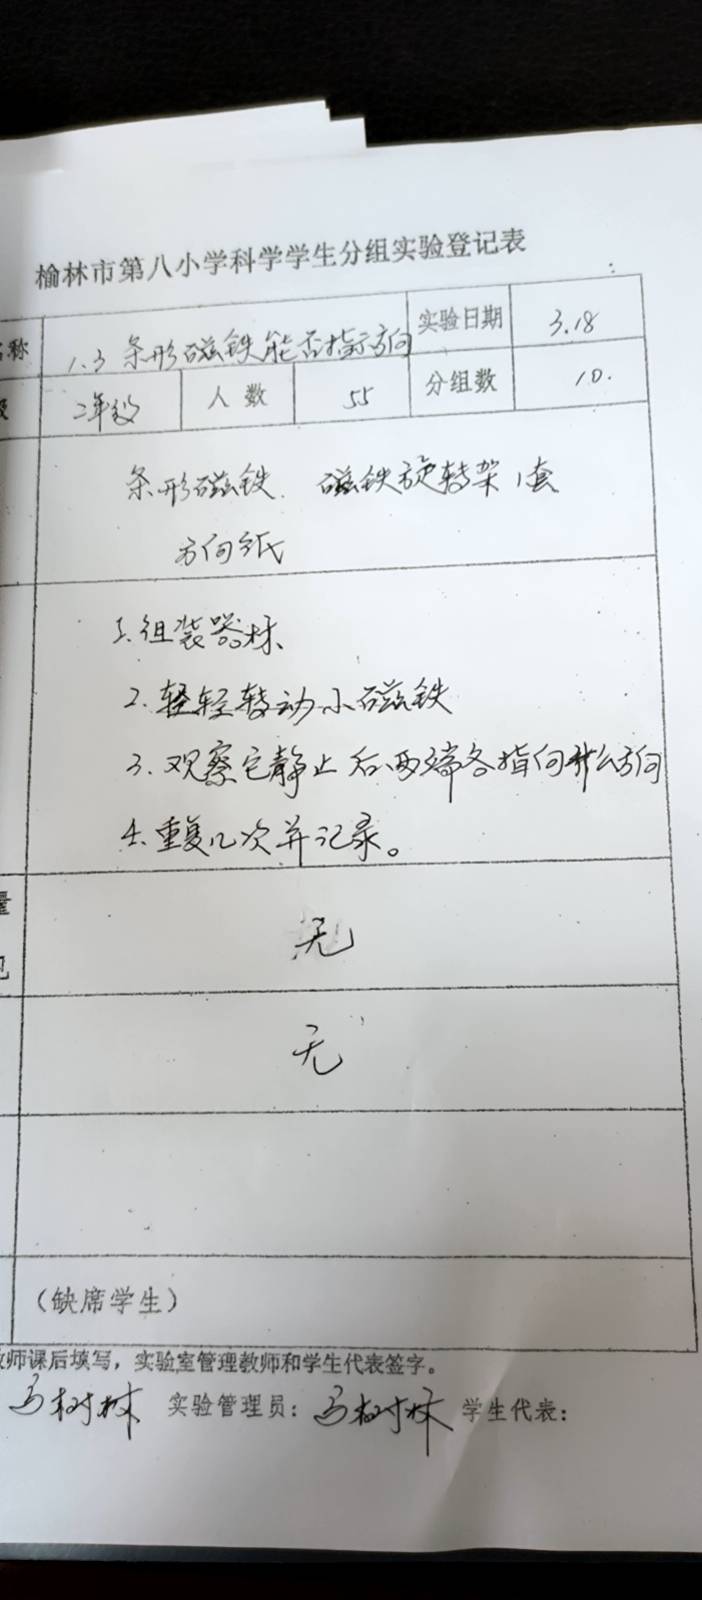 榆林市第八小学科学学生分组实验登记表
名称 1.3 条形磁铁能否指示方向 实验日期 3.18
级 2年级 人数 55 分组数 10.
条形磁铁 磁铁旋转架1套
方向纸
1.组装器材、
2.轻轻转动小磁铁
3.观察它静止后两端各指向什么方向
4.重复几次并记录。
量
无
无
(缺席学生)
教师课后填写,实验室管理教师和学生代表签字。
马树林 实验管理员:马树林 学生代表: